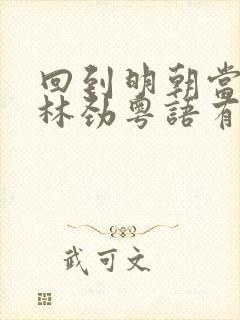 回到明朝當
林劲粵語有
武可文